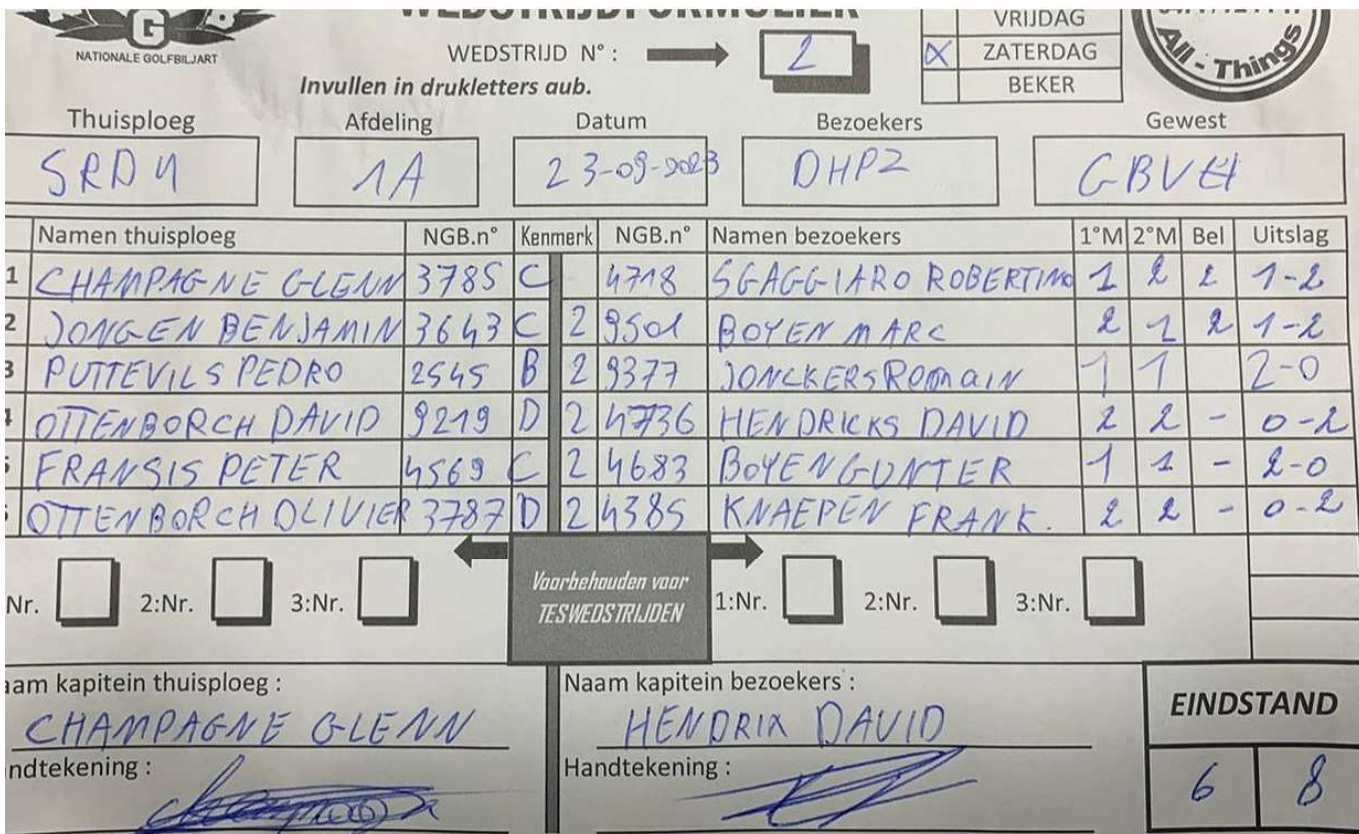 WEDSTRIJDFORMULIER
NATIONALE GOLFBILJART
WEDSTRIJD N° : 2
Invullen in drukletters aub.
VRIJDAG
X ZATERDAG
BEKER
All - Things
Thuisploeg Afdeling Datum Bezoekers Gewest
SRD4 1A 23-09-2023 DHPZ GBVH
Namen thuisploeg NGB.n° Kenmerk NGB.n° Namen bezoekers 1°M 2°M Bel Uitslag
1 CHAMPAGNE GLENN 3785 C 4718 SGAGGIARO ROBERTINO 1 2 2 1-2
2 JONGEN BENJAMIN 3643 C 2 9501 BOYEN MARC 2 1 2 1-2
3 PUTTEVILS PEDRO 2545 B 2 9377 JONCKERS ROMAIN 1 1 2-0
4 OTTENBORCH DAVID 9219 D 2 4736 HENDRICKS DAVID 2 2 - 0-2
5 FRANSIS PETER 4569 C 2 4683 BOYEN GUNTER 1 1 - 2-0
6 OTTENBORCH OLIVIER 3787 D 2 4385 KNAEPEN FRANK. 2 2 - 0-2
Nr. 2:Nr. 3:Nr. Voorbehouden voor 1:Nr. 2:Nr. 3:Nr.
TESWEDSTRIJDEN
aam kapitein thuisploeg : Naam kapitein bezoekers :
CHAMPAGNE GLENN HENDRIX DAVID
EINDSTAND
ndtekening : Handtekening :
6 8